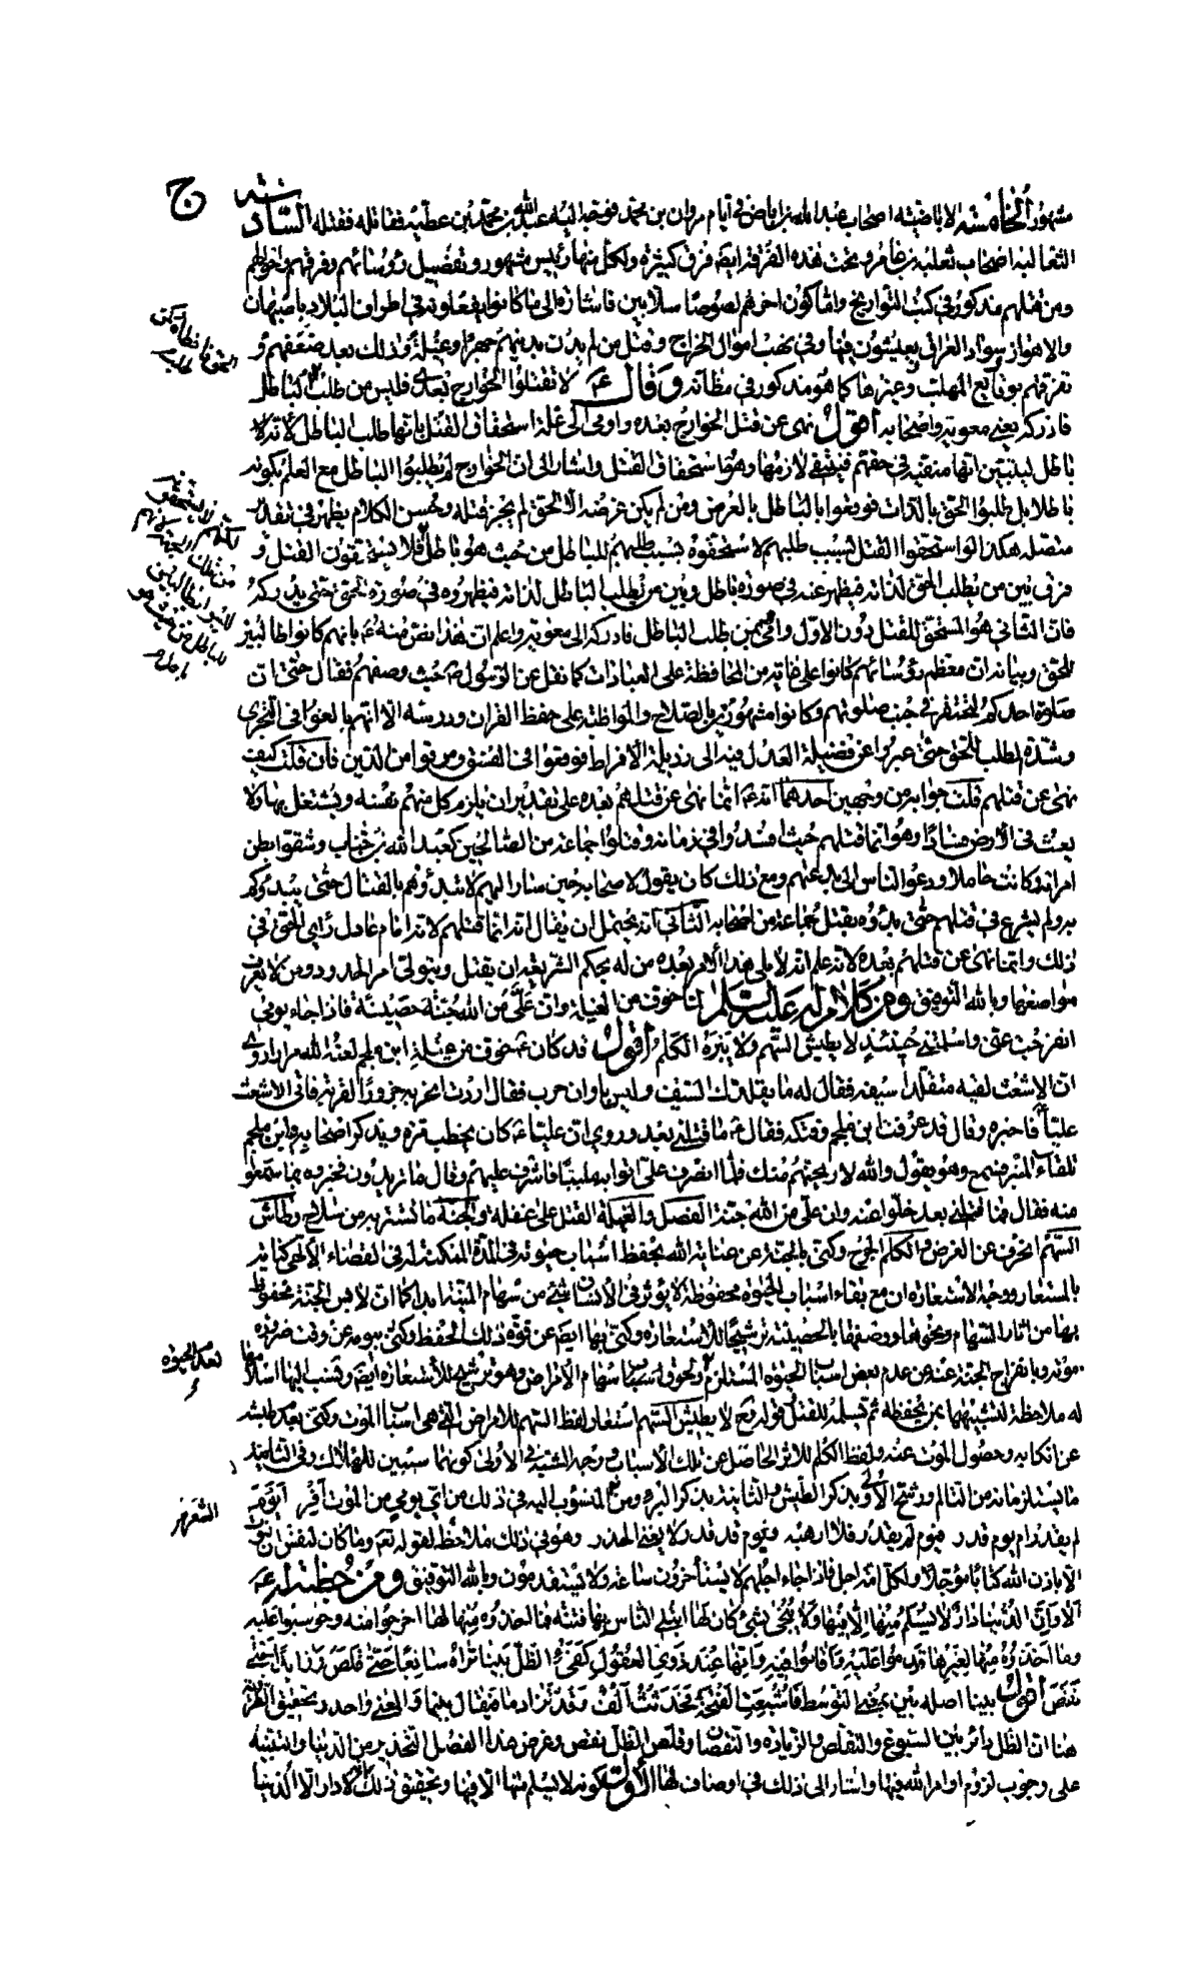 مشهور الخامسة الاباضية اصحاب عبد الله بن اباض في ايام مروان بن محمد فوجه اليه عبد الله بن محمد بن عطية فقاتله فقتله السادسة
الثعالبة اصحاب ثعلبة بن عامر وتحت هذه الفرق ايضا فرق كثيرة ولكل منها رئيس مشهور وتفصيل رؤسائهم وفرقهم واحوالهم
ومن قتلهم مذكور في كتب التواريخ واما كون اخرهم لصوصا سلابين فاشارة الى ما كانوا يفعلونه في اطراف البلاد باصبهان
والاهواز وسواد العراق يعيشون فيها وفي نهب اموال الخراج وقتل من لم يدن بدينهم جهرا وغيلة وذلك بعد ضعفهم و
تفرقهم بوقايع المهلب وغيرها كما هو مذكور في مظانه وقال ع لا تقتلوا الخوارج بعدي فليس من طلب الباطل
فادركه يعني معوية واصحابه اقول نهى عن قتل الخوارج بعده واومى الى علة استحقاق القتل بانها طلب الباطل لانه لا
باطل ليتبين انها منفية في حقهم فينتفي لازمها وهو استحقاق القتل واشار الى ان الخوارج لم يطلبوا الباطل مع العلم بكونه
باطلا بل طلبوا الحق بالذات فوقعوا بالباطل بالعرض ومن لم يكن غرضه الا الحق لم يجز قتله وحسن الكلام يظهر في تقدير
متصلة هكذا لو استحقوا القتل بسبب طلبهم لاستحقوه بسبب طلبهم للباطل من حيث هو باطل فلا يستحقون القتل و
فرق بين من يطلب الحق لذاته فيظهر عنه في صورة باطل وبين من يطلب الباطل لذاته فيظهره في صورة حق حتى يدركه
فان الثاني هو المستحق للقتل دون الاول واومى بمن طلب الباطل فادركه الى معوية واعلم ان هذا نص منه ع بانهم كانوا طالبين
للحق وبيانه ان معظم رؤسائهم كانوا على غاية من المحافظة على العبادات كما نقل عن الرسول ص حيث وصفهم فقال حتى ان
صلوة احدكم لتحتقر في جنب صلوتهم وكانوا مشهورين بالصلاح والمواظبة على حفظ القران ودرسه الا انهم بالغوا في التحري
وشدة الطلب للحق حتى عبروا عن فضيلة العدل فيه الى رذيلة الافراط فوقعوا في الفسق ومرقوا من الدين فان قلت كيف
نهى عن قتلهم قلت جوابه من وجهين احدهما انه ع انما نهى عن قتلهم بعده على تقدير ان يلزم كل منهم نفسه ويشتغل بها ولا
يعث في الارض فسادا وهو انما قتلهم حيث افسدوا في زمانه وقتلوا جماعة من الصالحين كعبد الله بن خباب وشقوا بطن
امراته كانت حاملا ودعوا الناس الى بدعتهم ومع ذلك كان يقول لاصحابه حين سار اليهم لا تبدؤهم بالقتال حتى يبدؤكم
به ولم يشرع في قتلهم حتى بدؤه بقتل جماعة من اصحابه الثاني انه يحتمل ان يقال انه انما قتلهم لانه امام عادل راى الحق في
ذلك وانما نهى عن قتلهم بعده لانه علم انه لا يلي هذا الامر بعده من له بحكم الشريعة ان يقتل ويتولى امر الحدود ومن لا يعرف
مواضعها وبالله التوفيق ومن كلام له عليه السلم لما خوف من الغيلة وان على من الله جنة حصينة فاذا جاء يومي
انفرجت عني واسلمتني فحينئذ لا يطيش السهم ولا يبرء الكلم اقول قد كان ع خوف من غيلة ابن ملجم لعنه الله مرارا روى
ان الاشعث لقيه متقلدا سيفه فقال له ما يقلدك السيف وليس باوان حرب فقال اردت انحر به جزور القرية فاتى الاشعث
عليا فاخبره وقال قد عرفت ابن ملجم وفتكه فقال ع ما قتلني بعد وروي ان عليا ع كان يخطب مرة ويذكر اصحابه وابن ملجم
تلقاء المنبر فسمع وهو يقول والله لاريحنهم منك فلما انصرف علي اتوا به ملببا فاشرف عليهم وقال ما تريدون فخبروه بما سمعوا
منه فقال فما قتلني بعد خلوا عنه وان علي من الله جنة الفصل والغيلة القتل على غفلة والجنة ما تستتر به من سلاح وطاش
السهم انحرف عن الغرض والكلم الجرح وكنى بالجنة عن عناية الله بحفظ اسباب حيوته في المدة المكتوبة له في القضاء الالهي كناية
بالمستعار ووجه الاستعارة ان مع بقاء اسباب الحيوة محفوظة لا يؤثر في الانسان شيء من سهام المنية ابدا كما ان لابس الجنة محفوظ
بها من اثار السهام ونحوها ووصفها بالحصينة ترشيحا للاستعارة وكنى بها ايضا عن قوة ذلك الحفظ وكنى بيومه عن وقت ضرورة
موته وبانفراج الجنة عنه عن عدم بعض اسباب الحيوة المستلزم ولحوق اسباب سهام الامراض وهو ترشيح للاستعارة ايضا ونسب اليها اسلامها
له ملاحظة لتشبيهها بمن يحفظه ثم يسلمه للقتل قوله فح لا يطيش السهم استعار لفظ السهم للامراض التي هي اسباب الموت وكنى بعدم طيشه
عن انكابه وحصول الموت عنه ولفظ الكلم للاثر الحاصل عن تلك الاسباب ووجه الشبه في الاولى كونهما سببين للهلاك وفي الثانية
ما يستلزمانه من التالم ورشح الاولى بذكر الطيش والثانية بذكر البرء ومن المنسوب اليه في ذلك من اي يومي من الموت افر ايوم
لم يقدر ام يوم قدر فيوم لم يقدر فلا ارهبه ويوم قد قدر لا يغني الحذر وهو في ذلك ملاحظ لقوله تعم وما كان لنفس ان تموت
الا باذن الله كتابا مؤجلا ولكل امة اجل فاذا جاء اجلهم لا يستأخرون ساعة ولا يستقدمون وبالله التوفيق ومن خطبة له ع
الا وان الدنيا دار لا يسلم منها الا فيها ولا ينجى بشيء كان لها ابتلي الناس بها فتنة فما اخذوه منها لها اخرجوا منه وحوسبوا عليه
وما اخذوه منها لغيرها قدموا عليه واقاموا فيه وانها عند ذوي العقول كفيء الظل بينا تراه سابغا حتى قلص وزايدا حتى
نقص اقول بينا اصله بين بمعنى التوسط فاشبعت الفتحة فحدثت الف وقد تزاد ما فيقال بينما والمعنى واحد وتحقيق الظرفية
هنا ان الظل دائر بين السبوغ والتقلص والزيادة والنقصان وقلص الظل نقص وغرض هذا الفصل التحذير من الدنيا والتنبيه
على وجوب لزوم اوامر الله فيها واشار الى ذلك في اوصاف لها الاول كونه لا يسلم منها الا فيها وتحقيق ذلك انه لا دار الا الدنيا
بعد الحيوة
الشعر